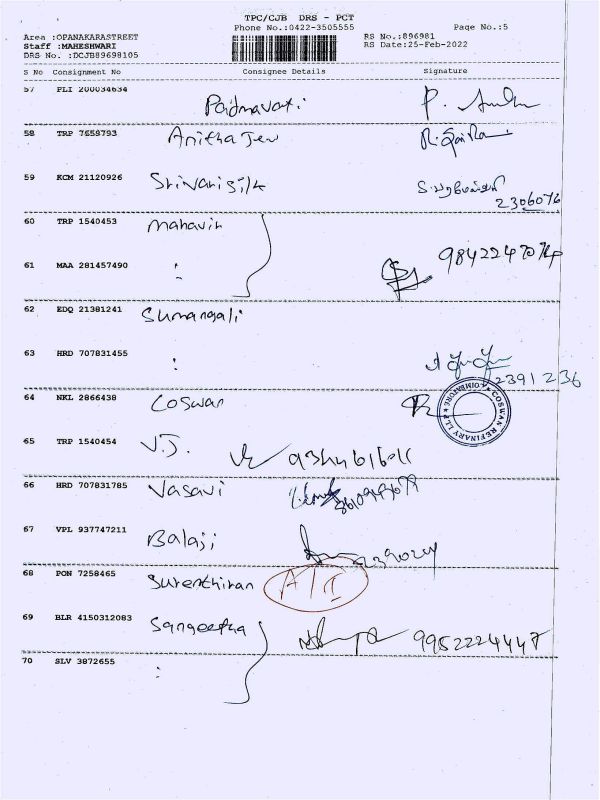 TPC/CJB DRS - PCT
Phone No.:0422-3505555 Page No.:5
Area :OPANAKARASTREET RS No.:896981
Staff :MAHESHWARI RS Date:25-Feb-2022
DRS No. :DCJB89698105
S No Consignment No Consignee Details Signature
57 PLI 200034634 Padmavati
58 TRP 7658793 Anitha Jew
59 KCM 21120926 Srivarisilk
2306076
60 TRP 1540453 Mahavir
61 MAA 281457490 :
62 EDQ 21381241 Sumangali
63 HRD 707831455 :
2391236
64 NKL 2866438 Coswan
COSWAN REFINARY LLP COIMBATORE
65 TRP 1540454 V.J.
66 HRD 707831785 Vasavi
67 VPL 937747211 Balaji
68 PON 7258465 Surenthiran
69 BLR 4150312083 Sangeetha 9952224447
70 SLV 3872655 :